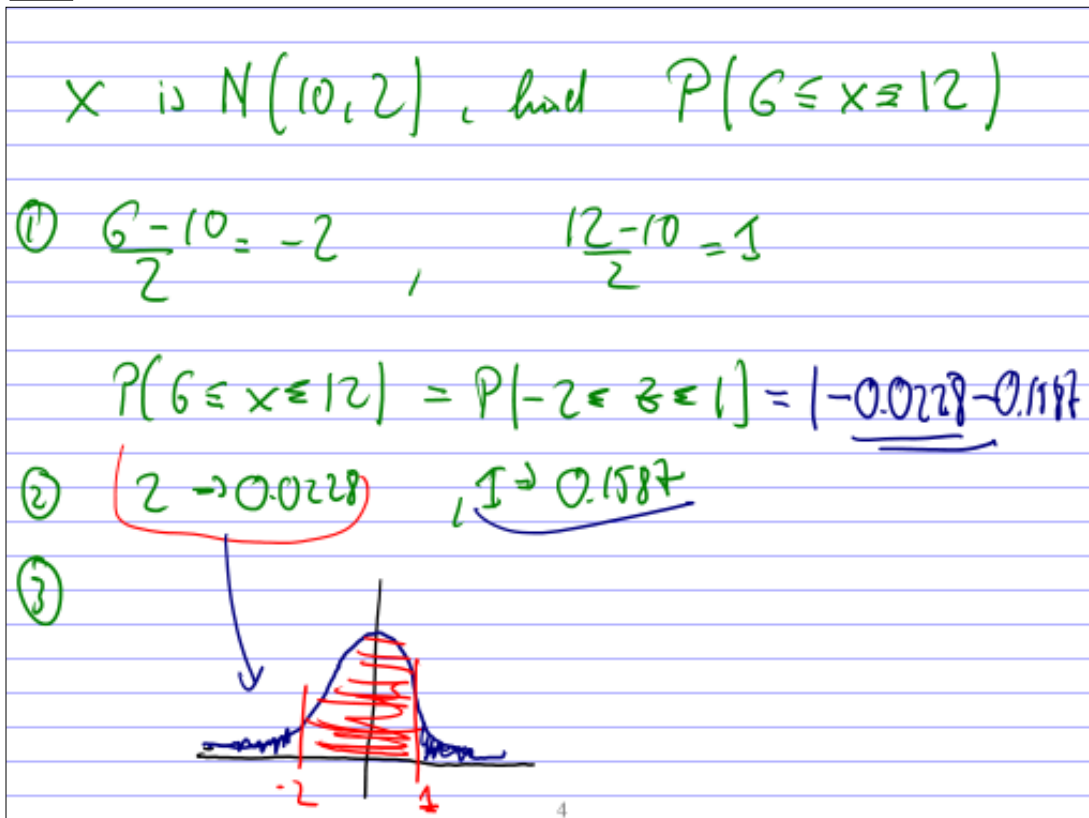 X is N(10,2), find P(6≤x≤12)
① (6-10)/2 = -2 , (12-10)/2 = 1
P(6≤x≤12) = P(-2≤z≤1) = 1-0.0228-0.1587
② 2→0.0228 , 1→0.1587
③
-2 1
4